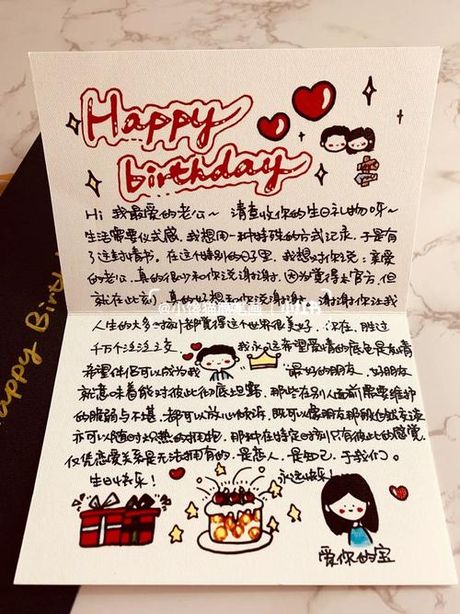 Happy
birthday
Hi 我最爱的老公~ 请查收你的生日礼物呀~
生活需要仪式感，我想用一种特殊的方式记录，于是有
了这封情书。在这个特别的日子里，我想对你说：亲爱
的老公，真的很少和你说谢谢，因为觉得太官方，但
就在此刻，真的好想和你说谢谢，谢谢你让我
人生的大多时刻都觉得这个世界很美好，你在，胜过
千万个泛泛之交 我永远希望爱情的底色是友情
希望伴侣可以成为我 最好的朋友，好朋友
就意味着能对彼此彻底坦诚，那些在别人面前需要维护
的脆弱与不堪，都可以放心倾诉，既可以像朋友那般促膝交谈
亦可以随时炽热的拥抱，那种在特定时刻只有彼此的感觉，
仅凭恋爱关系是无法拥有的，是恋人，是知己，于我们。
生日快乐！ 永远快乐！
爱你的宝
Happy Birt